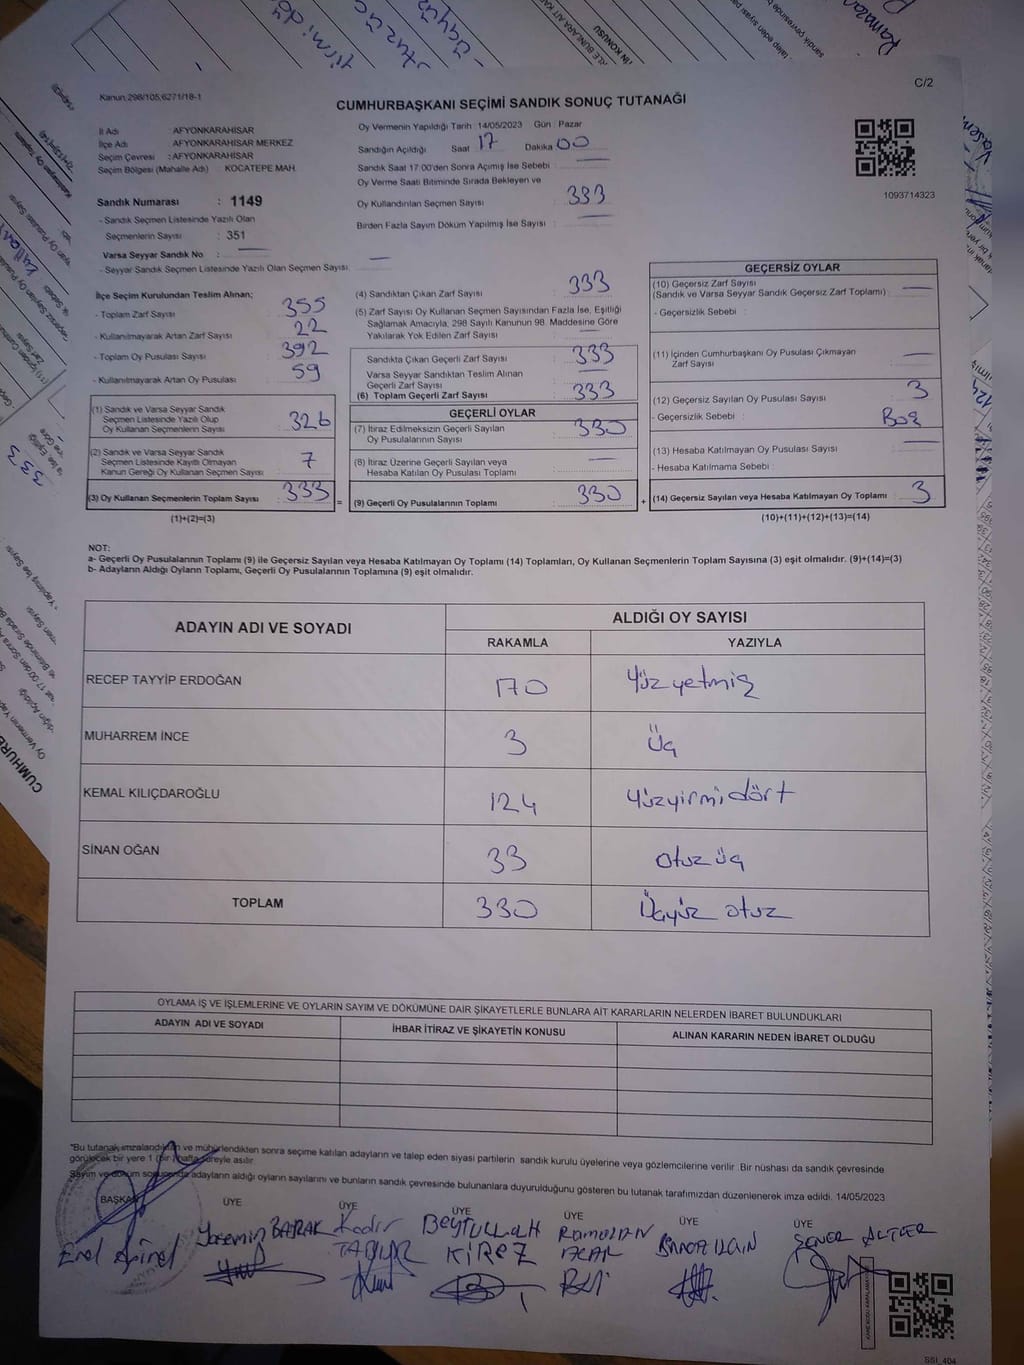 C/2
Kanun, 298/105,6271/18-1
CUMHURBAŞKANI SEÇİMİ SANDIK SONUÇ TUTANAĞI
İl Adı : AFYONKARAHİSAR
İlçe Adı : AFYONKARAHİSAR MERKEZ
Seçim Çevresi : AFYONKARAHİSAR
Seçim Bölgesi (Mahalle Adı) : KOCATEPE MAH.
Sandık Numarası : 1149
- Sandık Seçmen Listesinde Yazılı Olan
Seçmenlerin Sayısı : 351
Varsa Seyyar Sandık No :
- Seyyar Sandık Seçmen Listesinde Yazılı Olan Seçmen Sayısı:
Oy Vermenin Yapıldığı Tarih : 14/05/2023 Gün : Pazar
Sandığın Açıldığı Saat 17 Dakika 00
Sandık Saat 17:00'den Sonra Açımış İse Sebebi :
Oy Verme Saati Bitiminde Sırada Bekleyen ve
Oy Kullandırılan Seçmen Sayısı : 333
Birden Fazla Sayım Döküm Yapılmış İse Sayısı :
1093714323
İlçe Seçim Kurulundan Teslim Alınan;
- Toplam Zarf Sayısı : 355
- Kullanılmayarak Artan Zarf Sayısı : 22
- Toplam Oy Pusulası Sayısı : 392
- Kullanılmayarak Artan Oy Pusulası : 59
(1) Sandık ve Varsa Seyyar Sandık
Seçmen Listesinde Yazılı Olup
Oy Kullanan Seçmenlerin Sayısı : 326
(2) Sandık ve Varsa Seyyar Sandık
Seçmen Listesinde Kayıtlı Olmayan
Kanun Gereği Oy Kullanan Seçmen Sayısı : 7
(3) Oy Kullanan Seçmenlerin Toplam Sayısı : 333 =
(1)+(2)=(3)
(4) Sandıktan Çıkan Zarf Sayısı : 333
(5) Zarf Sayısı Oy Kullanan Seçmen Sayısından Fazla İse, Eşitliği
Sağlamak Amacıyla, 298 Sayılı Kanunun 98. Maddesine Göre
Yakılarak Yok Edilen Zarf Sayısı :
Sandıkta Çıkan Geçerli Zarf Sayısı : 333
Varsa Seyyar Sandıktan Teslim Alınan
Geçerli Zarf Sayısı :
(6) Toplam Geçerli Zarf Sayısı : 333
GEÇERLİ OYLAR
(7) İtiraz Edilmeksizin Geçerli Sayılan
Oy Pusulalarının Sayısı : 330
(8) İtiraz Üzerine Geçerli Sayılan veya
Hesaba Katılan Oy Pusulası Toplamı :
(9) Geçerli Oy Pusulalarının Toplamı : 330 +
GEÇERSİZ OYLAR
(10) Geçersiz Zarf Sayısı
(Sandık ve Varsa Seyyar Sandık Geçersiz Zarf Toplamı) :
- Geçersizlik Sebebi :
(11) İçinden Cumhurbaşkanı Oy Pusulası Çıkmayan
Zarf Sayısı :
(12) Geçersiz Sayılan Oy Pusulası Sayısı : 3
- Geçersizlik Sebebi : Boş
(13) Hesaba Katılmayan Oy Pusulası Sayısı :
- Hesaba Katılmama Sebebi :
(14) Geçersiz Sayılan veya Hesaba Katılmayan Oy Toplamı : 3
(10)+(11)+(12)+(13)=(14)
NOT:
a- Geçerli Oy Pusulalarının Toplamı (9) ile Geçersiz Sayılan veya Hesaba Katılmayan Oy Toplamı (14) Toplamları, Oy Kullanan Seçmenlerin Toplam Sayısına (3) eşit olmalıdır. (9)+(14)=(3)
b- Adayların Aldığı Oyların Toplamı, Geçerli Oy Pusulalarının Toplamına (9) eşit olmalıdır.
ADAYIN ADI VE SOYADI ALDIĞI OY SAYISI
RAKAMLA YAZIYLA
RECEP TAYYİP ERDOĞAN 170 Yüz yetmiş
MUHARREM İNCE 3 Üç
KEMAL KILIÇDAROĞLU 124 Yüzyirmidört
SİNAN OĞAN 33 otuz üç
TOPLAM 330 Üçyüz otuz
OYLAMA İŞ VE İŞLEMLERİNE VE OYLARIN SAYIM VE DÖKÜMÜNE DAİR ŞİKAYETLERLE BUNLARA AİT KARARLARIN NELERDEN İBARET BULUNDUKLARI
ADAYIN ADI VE SOYADI İHBAR İTİRAZ VE ŞİKAYETİN KONUSU ALINAN KARARIN NEDEN İBARET OLDUĞU
*Bu tutanak imzalandıktan ve mühürlendikten sonra seçime katılan adayların ve talep eden siyasi partilerin sandık kurulu üyelerine veya gözlemcilerine verilir. Bir nüshası da sandık çevresinde
görülecek bir yere 1 (bir) hafta süreyle asılır.
Sayım ve döküm sonucunda adayların aldığı oyların sayılarını ve bunların sandık çevresinde bulunanlara duyurulduğunu gösteren bu tutanak tarafımızdan düzenlenerek imza edildi. 14/05/2023
BAŞKAN ÜYE ÜYE ÜYE ÜYE ÜYE ÜYE
Yasemin BAŞRAK Kadir BEYTULLAH Ramazan
KİREZ ACAR
SSI_404